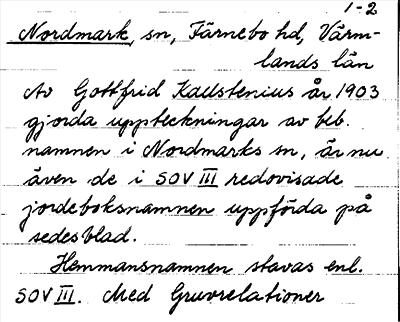 1-2
Nordmark, sn, Färnebo hd, Värm-
lands län
Av Gottfrid Kallstenius år 1903
gjorda uppteckningar av beb.
namnen i Nordmarks sn, är nu
även de i SOV III redovisade
jordeboksnamnen uppförda på
sedesblad.
Hemmansnamnen stavas enl.
SOV III. Med Gruvrelationer